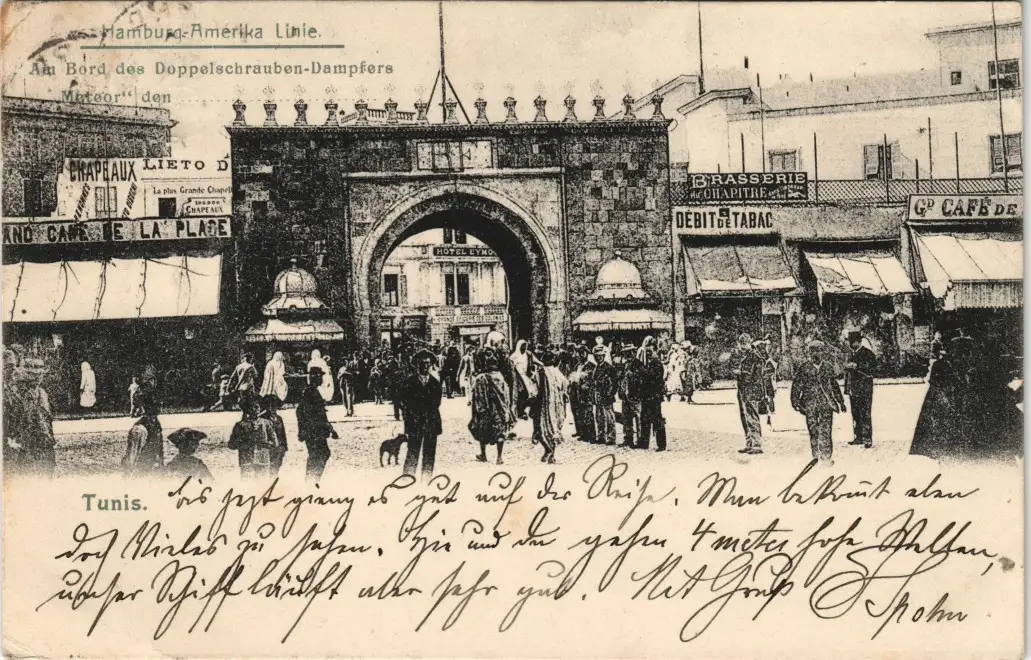 Hamburg-Amerika Linie.
An Bord des Doppelschrauben-Dampfers
"Meteor" den
CHAPEAUX LIETO D
La plus Grande Chapel
100000
CHAPEAUX
AND CAFÉ DE LA PLACE
HÔTEL EYMO
BRASSERIE
du CHAPITRE
DÉBIT DE TABAC
GD CAFÉ DE
Tunis. bis jetzt ging es gut auf der Reise. Man bekommt eben
doch Vieles zu sehen. Hie und da gehen 4 meter hohe Wellen,
unser Schiff läuft aber sehr gut. Mit Gruß